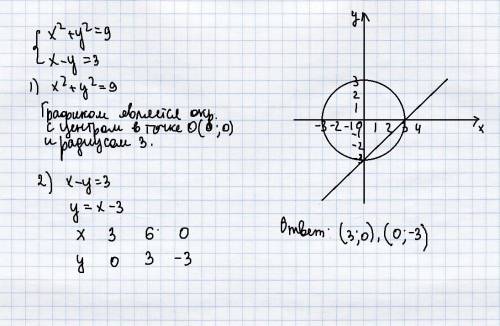 x²+y²=9
x-y=3
1) x²+y²=9
Графиком является окр.
с центром в точке O(0;0)
и радиусом 3.
2) x-y=3
y=x-3
x 3 6 0
y 0 3 -3
y
3
2
1
-3 -2 -1 0 1 2 3 4 x
-1
-2
-3
Ответ: (3;0), (0;-3)